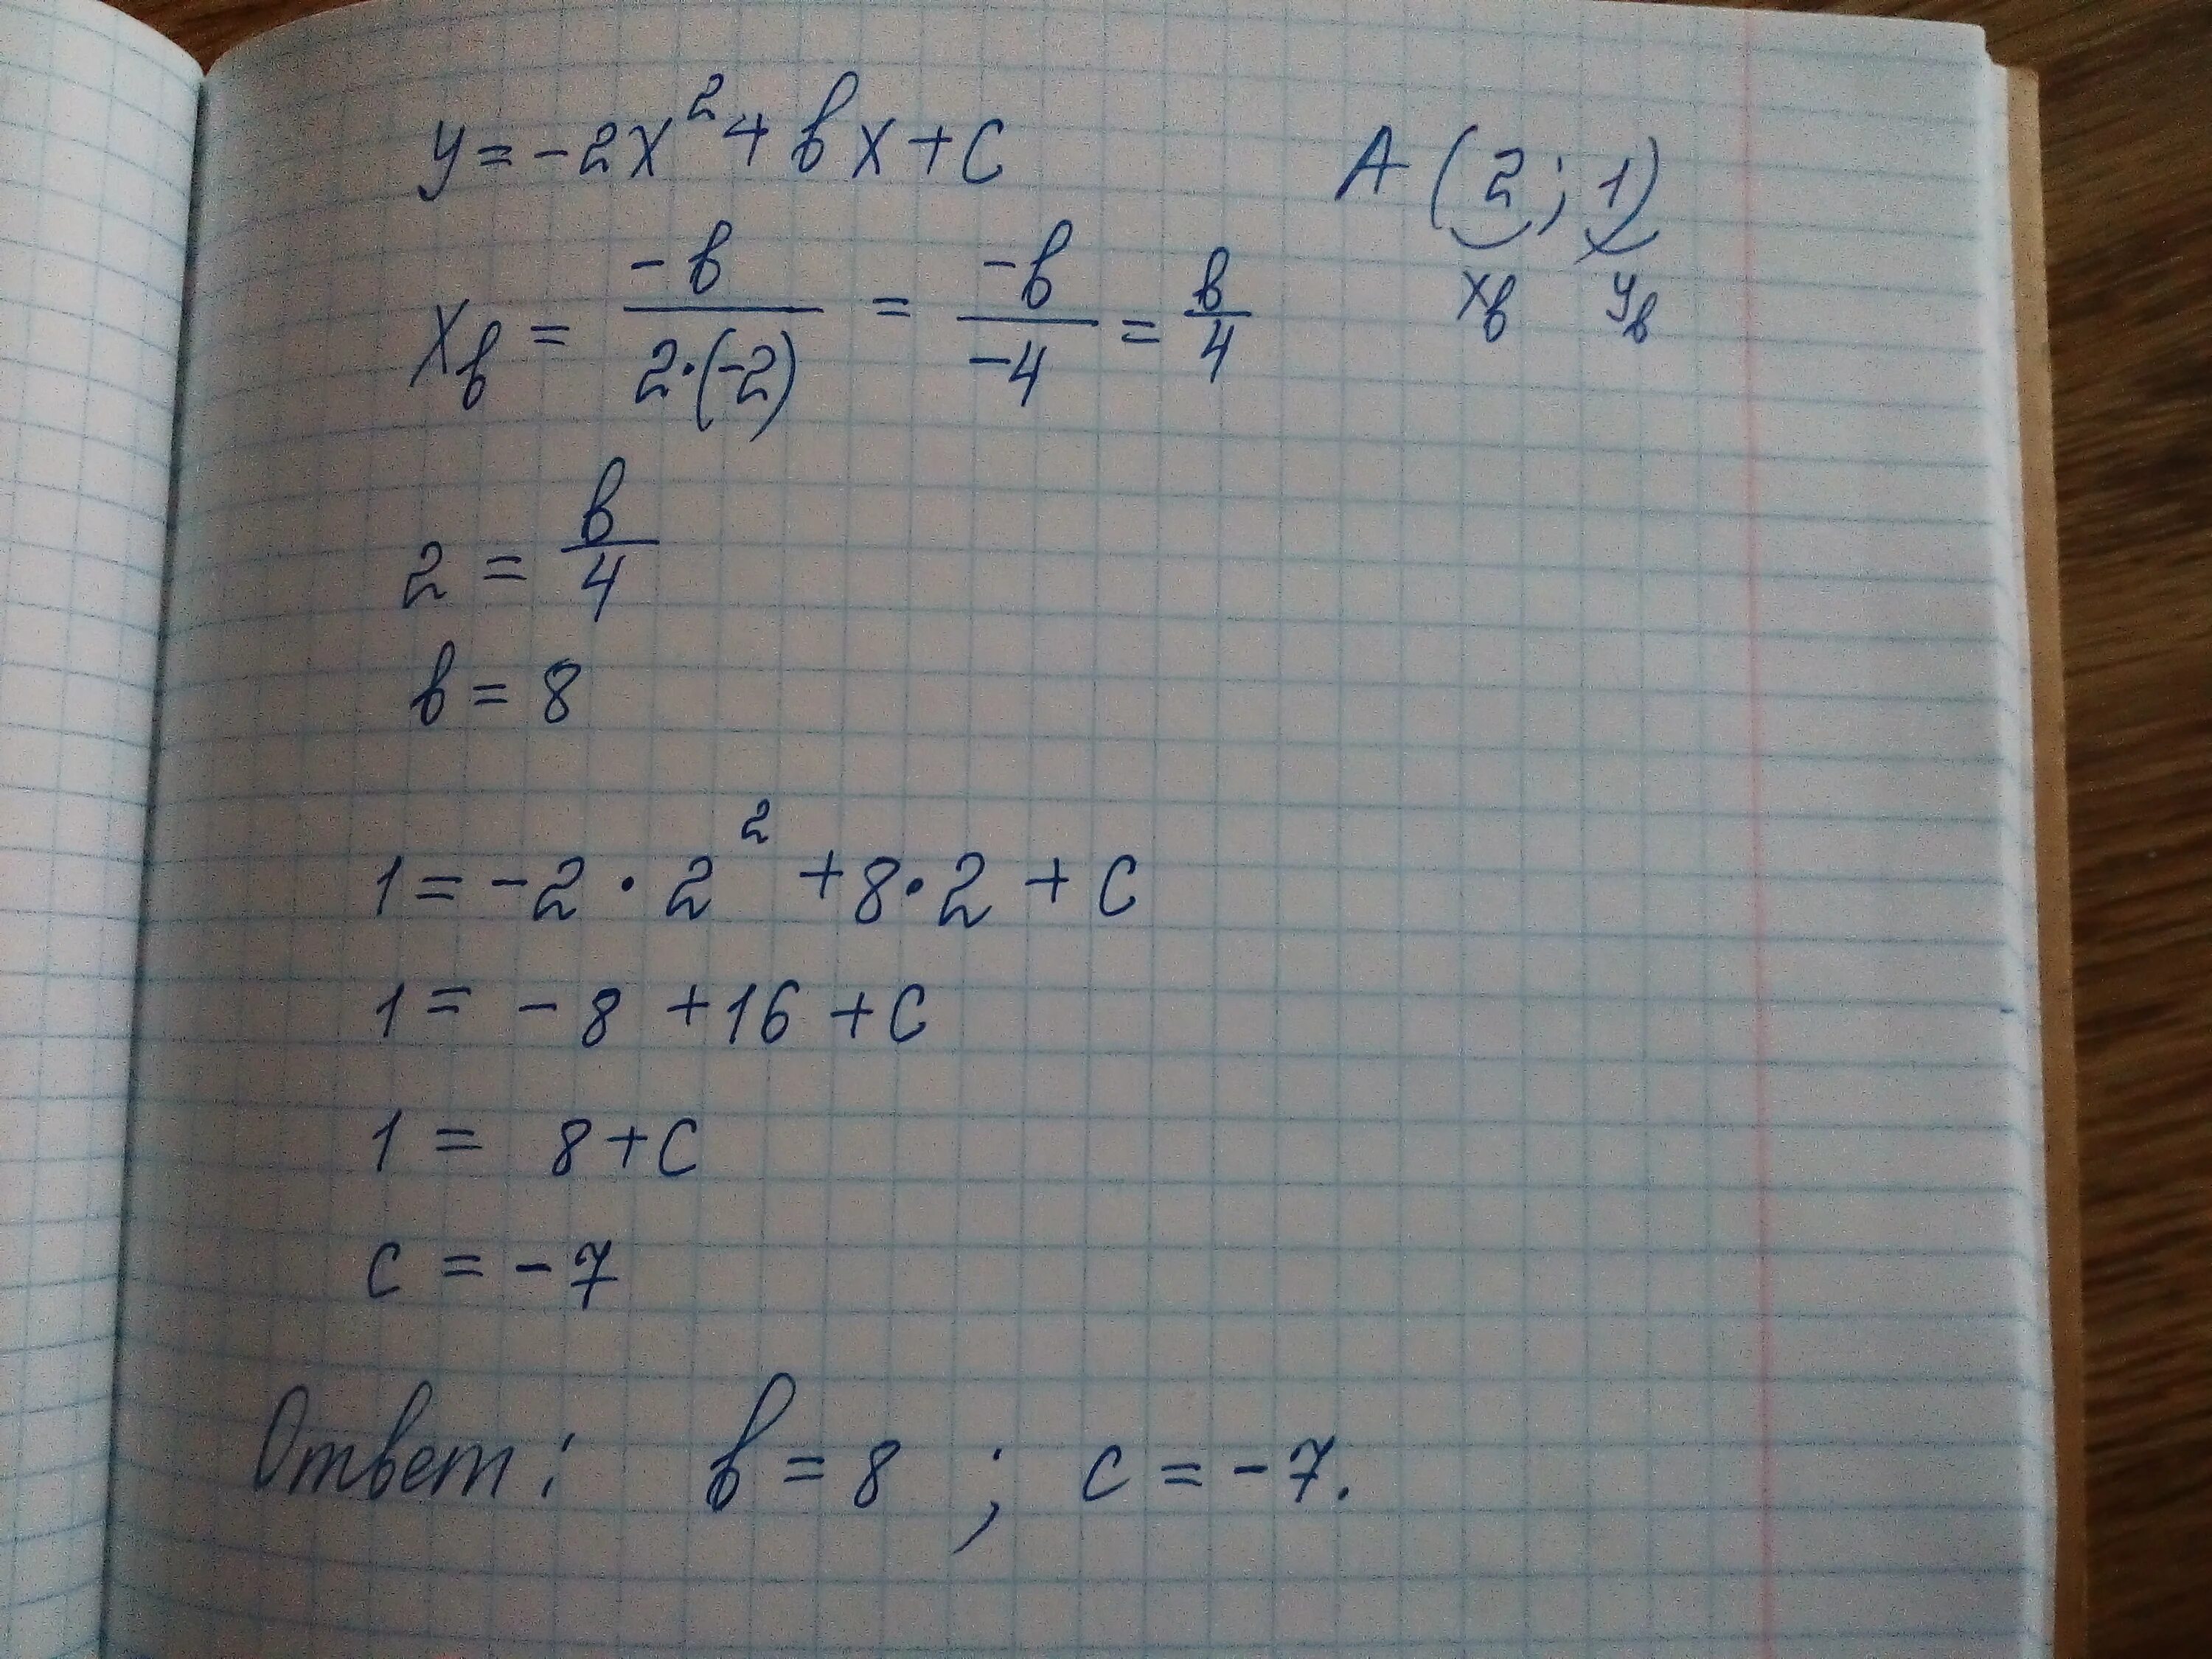 y = -2x² + bx + c A (2; 1)
xв yв
xв = -b/2·(-2) = -b/-4 = b/4
2 = b/4
b = 8
1 = -2 · 2² + 8·2 + c
1 = - 8 + 16 + c
1 = 8 + c
c = -7
Ответ: b = 8 ; c = -7.